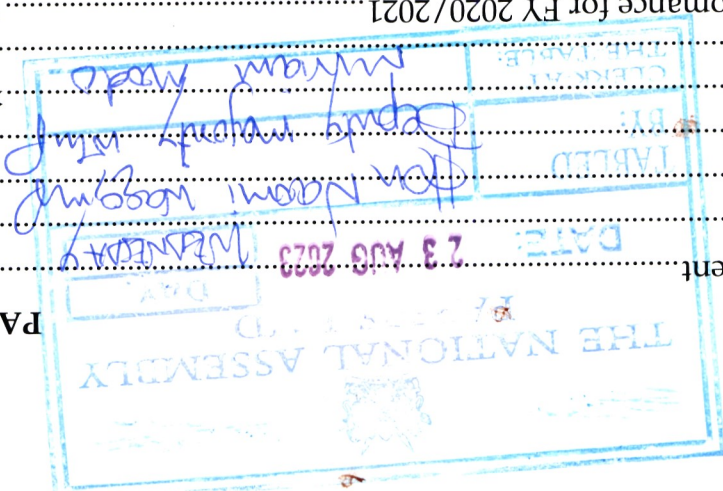 PA
THE NATIONAL ASSEMBLY
ent
DATE: 23 AUG 2023 WEDNESDAY
DAY
TABLED
BY:
Hon Naomi Waqo, MP
Deputy majority whip
CLERK-AT
THE-TABLE:
Miriam Modo
omance for FY 2020/2021